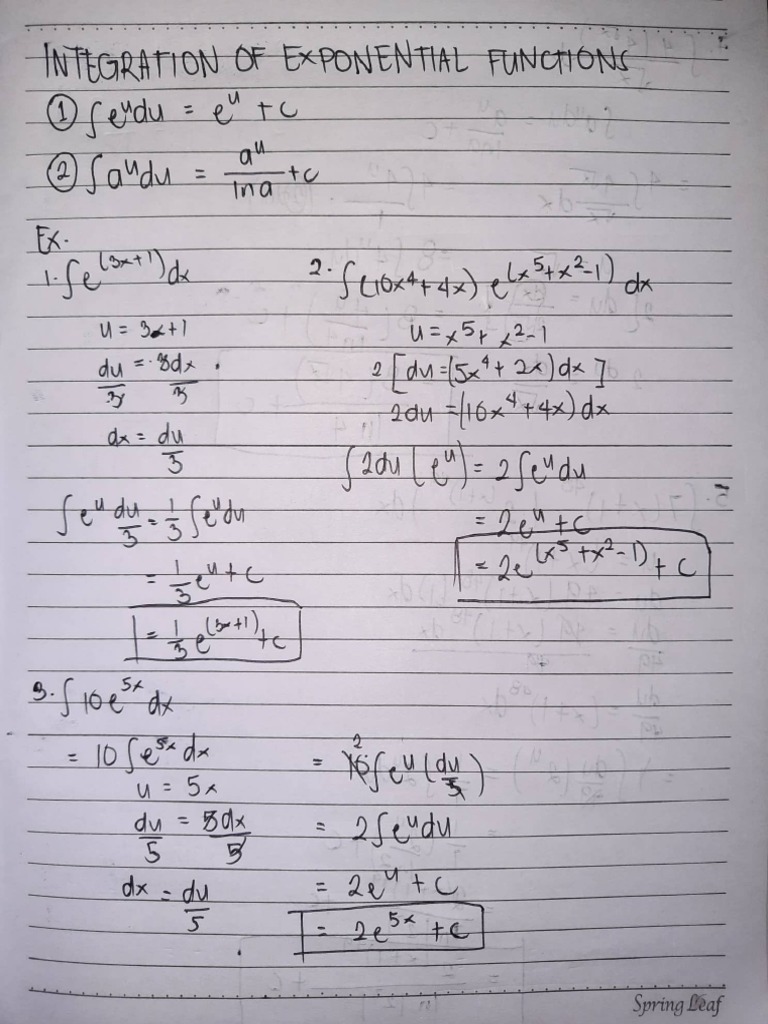 INTEGRATION OF EXPONENTIAL FUNCTIONS
① ∫e^u du = e^u + c
② ∫a^u du = a^u / ln a + c
Ex.
1. ∫e^(3x+1) dx
u = 3x+1
du/3 = 3dx/3
dx = du/3
∫e^u du/3 = 1/3 ∫e^u du
= 1/3 e^u + c
= 1/3 e^(3x+1) + c
2. ∫(10x^4 + 4x) e^(x^5+x^2-1) dx
u = x^5 + x^2 - 1
2 [du = (5x^4 + 2x) dx]
2du = (10x^4 + 4x) dx
∫2du (e^u) = 2∫e^u du
= 2e^u + c
= 2e^(x^5+x^2-1) + c
3. ∫10e^5x dx
= 10 ∫e^5x dx
u = 5x
du/5 = 5dx/5
dx = du/5
= 10 2 ∫e^u (du/5)
= 2∫e^u du
= 2e^u + c
= 2e^5x + c
Spring Leaf